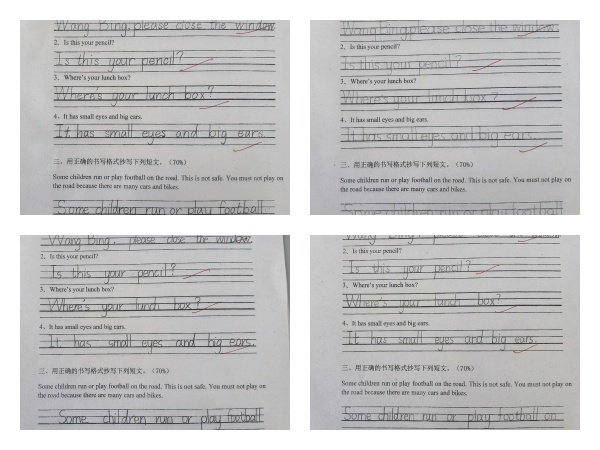 Wang Bing, please close the window.
2、Is this your pencil?
Is this your pencil?
3、Where's your lunch box?
Where's your lunch box?
4、It has small eyes and big ears.
It has small eyes and big ears.
三、用正确的书写格式抄写下列短文。（70%）
Some children run or play football on the road. This is not safe. You must not play on
the road because there are many cars and bikes.
Some children run or play football
Wang Bing, please close the window.
2、Is this your pencil?
Is this your pencil?
3、Where's your lunch box?
Where's your lunch box?
4、It has small eyes and big ears.
It has small eyes and big ears.
三、用正确的书写格式抄写下列短文。（70%）
Some children run or play football on the road. This is not safe. You must not play on
the road because there are many cars and bikes.
Some children run or play football
Wang Bing, please close the window.
2、Is this your pencil?
Is this your pencil?
3、Where's your lunch box?
Where's your lunch box?
4、It has small eyes and big ears.
It has small eyes and big ears.
三、用正确的书写格式抄写下列短文。（70%）
Some children run or play football on the road. This is not safe. You must not play on
the road because there are many cars and bikes.
Some children run or play football
2、Is this your pencil?
Is this your pencil?
3、Where's your lunch box?
Where's your lunch box?
4、It has small eyes and big ears.
It has small eyes and big ears.
三、用正确的书写格式抄写下列短文。（70%）
Some children run or play football on the road. This is not safe. You must not play on
the road because there are many cars and bikes.
Some children run or play football on